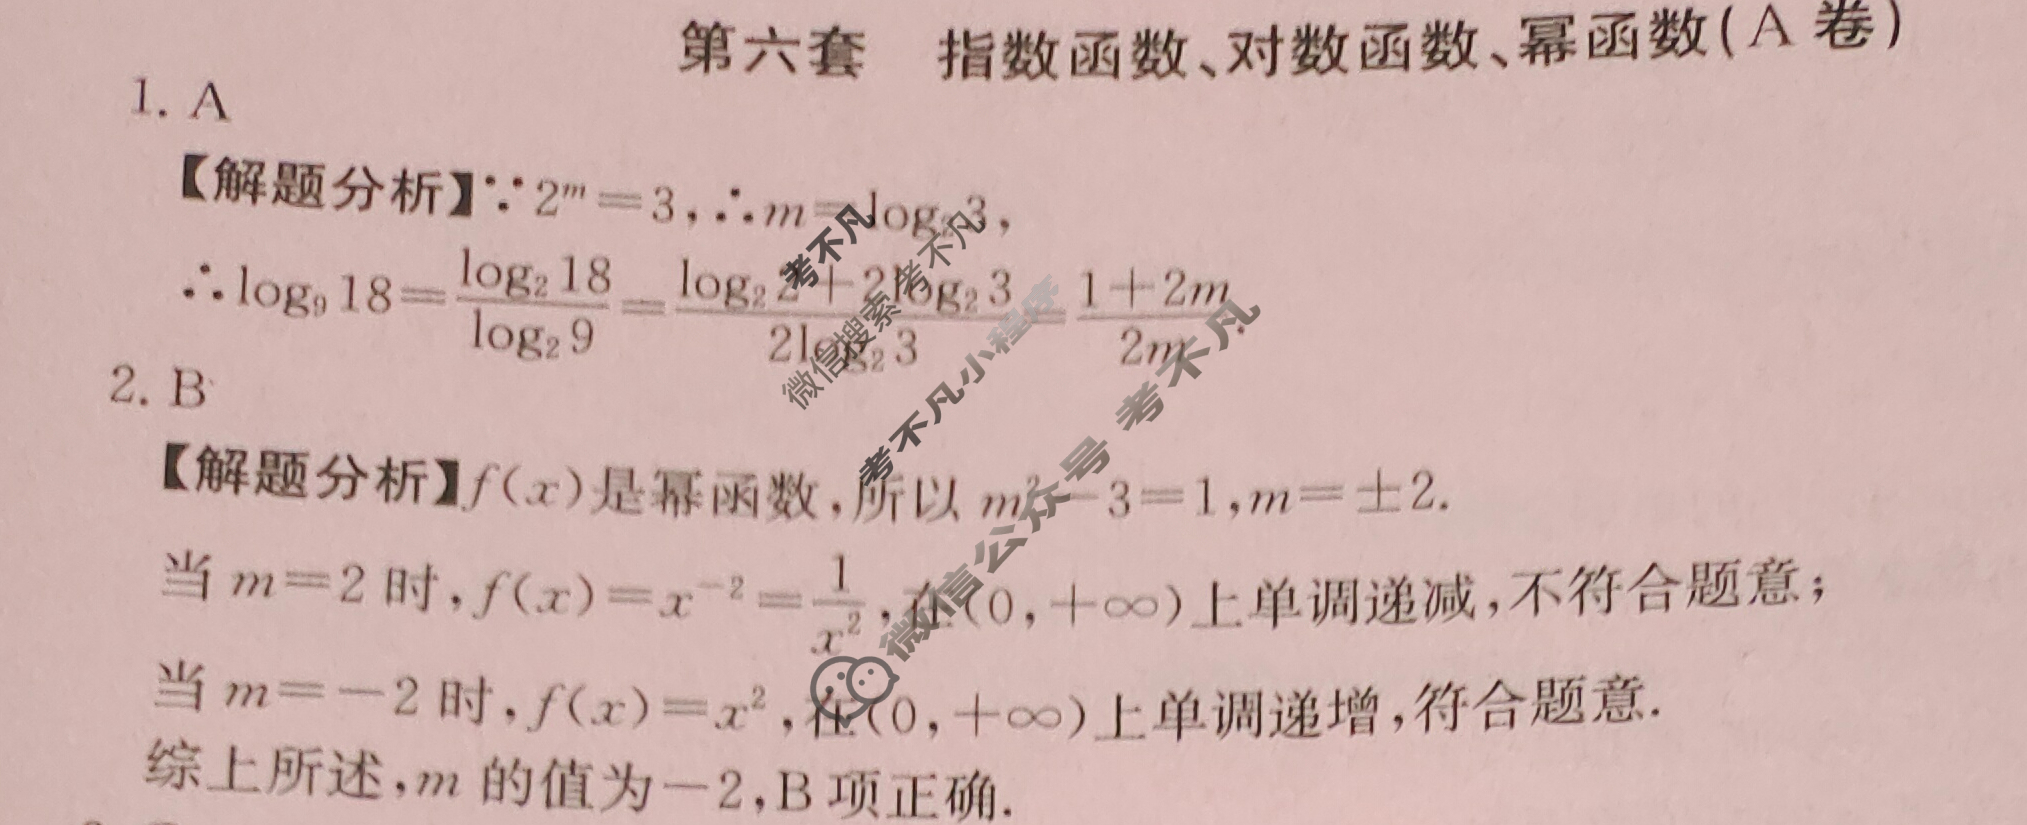 第六套 指数函数、对数函数、幂函数(A 卷)
1. A
【解题分析】∵2^m=3,∴m=log₂3,
∴log₉18=\frac{log₂18}{log₂9}=\frac{log₂2+2log₂3}{2log₂3}=\frac{1+2m}{2m}.
2. B
【解题分析】f(x)是幂函数,所以 m²-3=1,m=±2.
当 m=2 时,f(x)=x⁻²=\frac{1}{x²},在(0,+∞)上单调递减,不符合题意;
当 m=-2 时,f(x)=x²,在(0,+∞)上单调递增,符合题意.
综上所述,m 的值为-2,B 项正确.
考不凡
微信搜索考不凡
考不凡小程序
微信公众号 考不凡